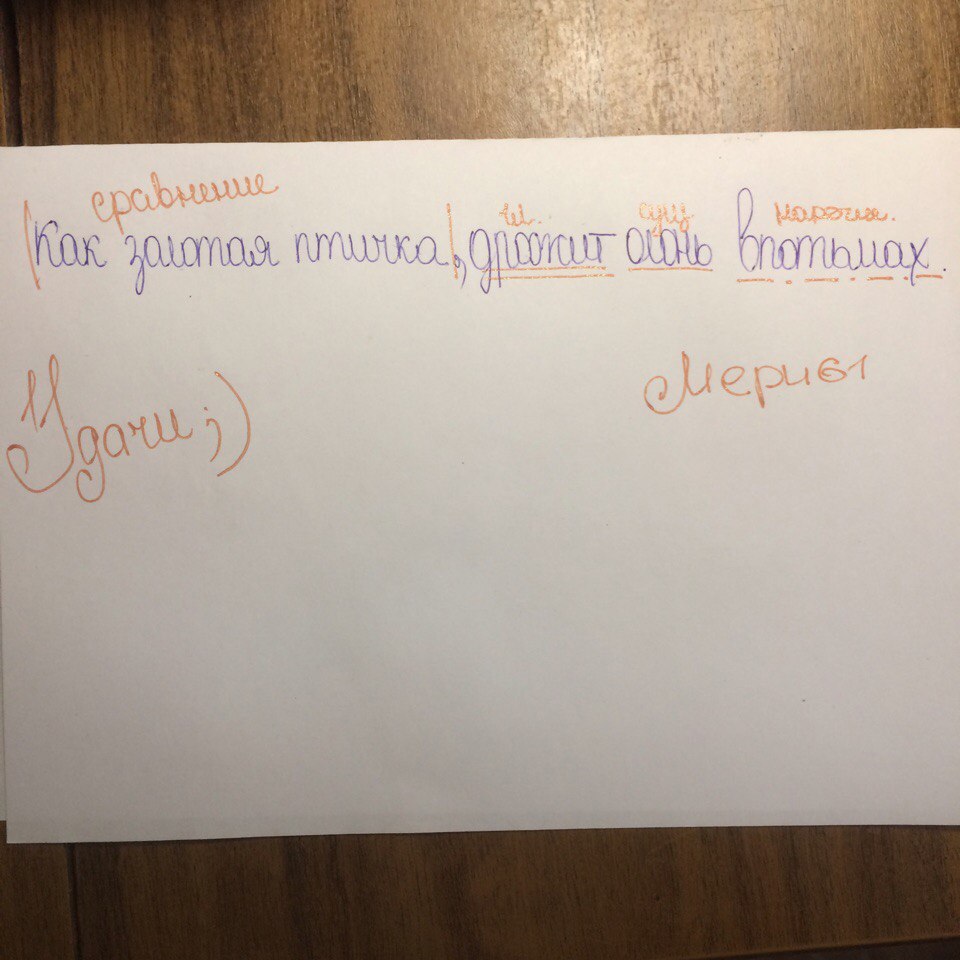 сравнение
гл. сущ наречие.
Как золотая птичка, дрожит огонь впотьмах.
Мери61
Удачи ;)